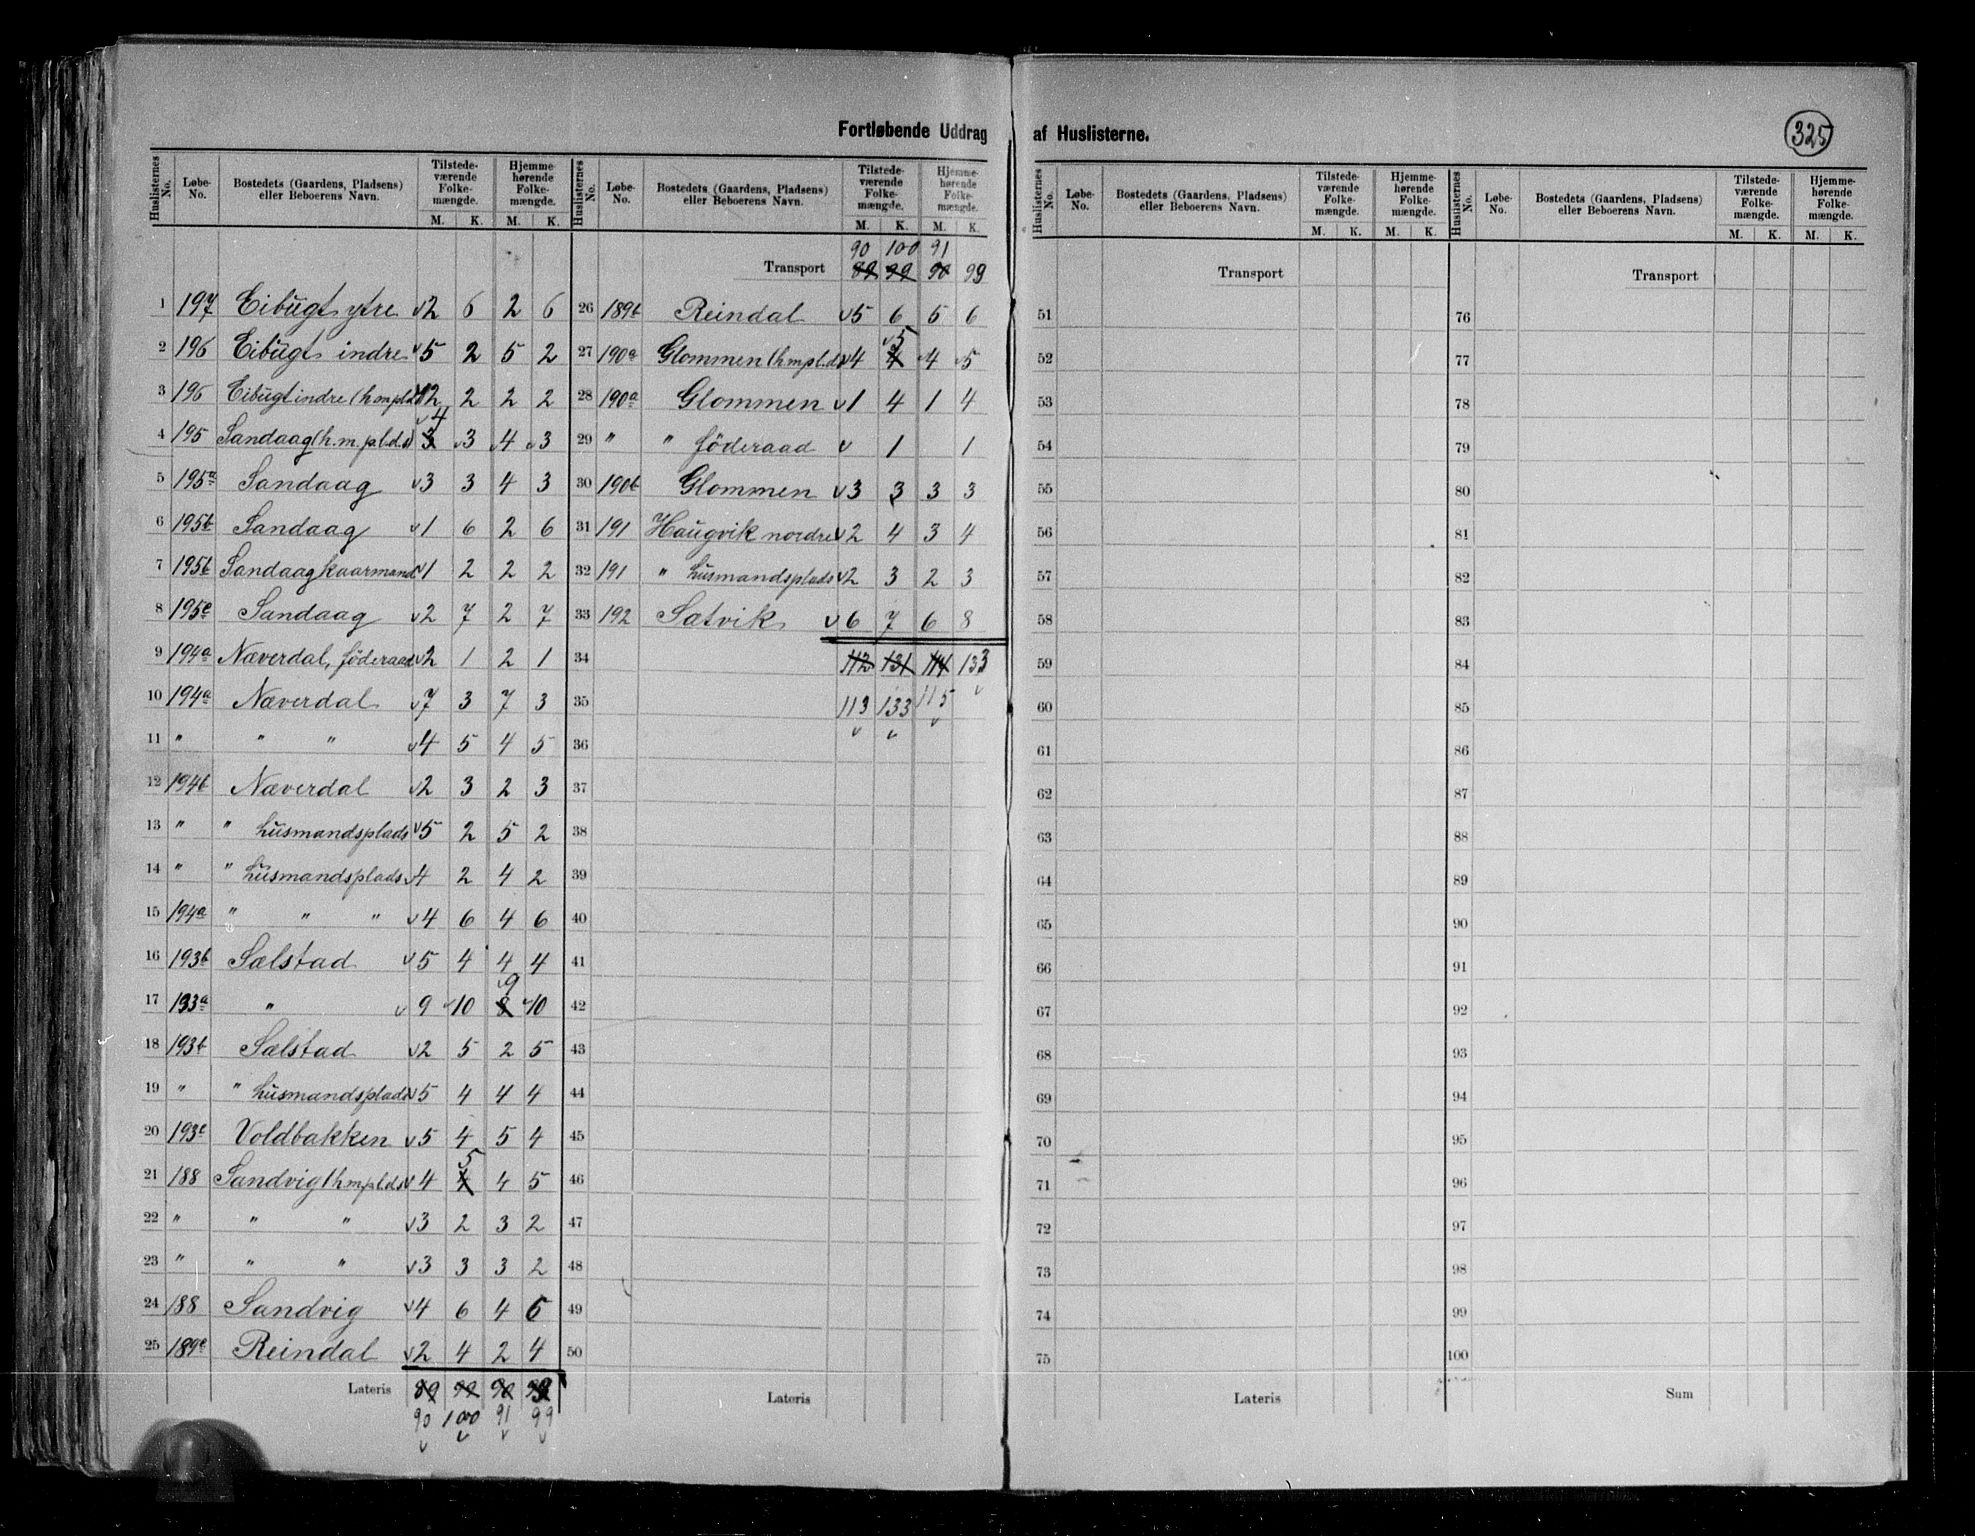 Fortløbende Uddrag af Huslisterne.
325
Huslisternes No. Løbe-No. Bostedets (Gaardens, Pladsens) eller Beboerens Navn. Tilstedeværende Folkemængde. M. K. Hjemmehørende Folkemængde. M. K.
1 197 Eibugt ytre v2 6 2 6
2 196 Eibugt indre v5 2 5 2
3 196 Eibugt indre (hmplds v2 2 2 2
4 195 Sandaag (h.m.pl.ds) 3 v4 v3 v4 v3
5 195a Sandaag v3 3 4 3
6 195b Sandaag v1 6 2 6
7 195b Sandaag kaarmand v1 2 2 2
8 195c Sandaag v2 7 2 7
9 194a Næverdal, föderaad v2 1 2 1
10 194a Næverdal v7 3 7 3
11 " " " v4 5 4 5
12 194b Næverdal v2 3 2 3
13 " " husmandsplads v5 2 5 2
14 " " husmandsplads v4 2 4 2
15 194a " " " v4 6 4 6
16 193b Sælstad v5 4 4 4
17 193a " v 9 v10 8 v9 v10
18 193b Sælstad v2 5 2 5
19 " " husmandsplads v5 4 4 4
20 193c Voldbakken v5 4 5 4
21 188 Sandvig (hmplds v4 4 5 4 5
22 " " " v3 2 3 2
23 " " " v3 3 3 2
24 188 Sandvig v4 6 4 6
25 189c Reindal v2 4 2 4
Lateris 89 99 90
90 100 91 99
v v v v
Huslisternes No. Løbe-No. Bostedets (Gaardens, Pladsens) eller Beboerens Navn. Tilstedeværende Folkemængde. M. K. Hjemmehørende Folkemængde. M. K.
90 100 91
Transport 89 99 90 99
26 189b Reindal v5 6 5 6
27 190a Glommen (hmpl.ds v4 4 v5 v4 v5
28 190a Glommen v1 4 1 4
29 " " föderaad v 1 1
30 190b Glommen v3 3 3 3
31 191 Haugvik nordre v2 4 3 4
32 191 " husmandsplads v2 3 2 3
33 192 Sætvik v6 7 6 8
34 112 131 114 133
35 113 133 115
v v v v
36
37
38
39
40
41
42
43
44
45
46
47
48
49
50
Lateris
Huslisternes No. Løbe-No. Bostedets (Gaardens, Pladsens) eller Beboerens Navn. Tilstedeværende Folkemængde. M. K. Hjemmehørende Folkemængde. M. K.
Transport
51
52
53
54
55
56
57
58
59
60
61
62
63
64
65
66
67
68
69
70
71
72
73
74
75
Lateris
Huslisternes No. Løbe-No. Bostedets (Gaardens, Pladsens) eller Beboerens Navn. Tilstedeværende Folkemængde. M. K. Hjemmehørende Folkemængde. M. K.
Transport
76
77
78
79
80
81
82
83
84
85
86
87
88
89
90
91
92
93
94
95
96
97
98
99
100
Sum